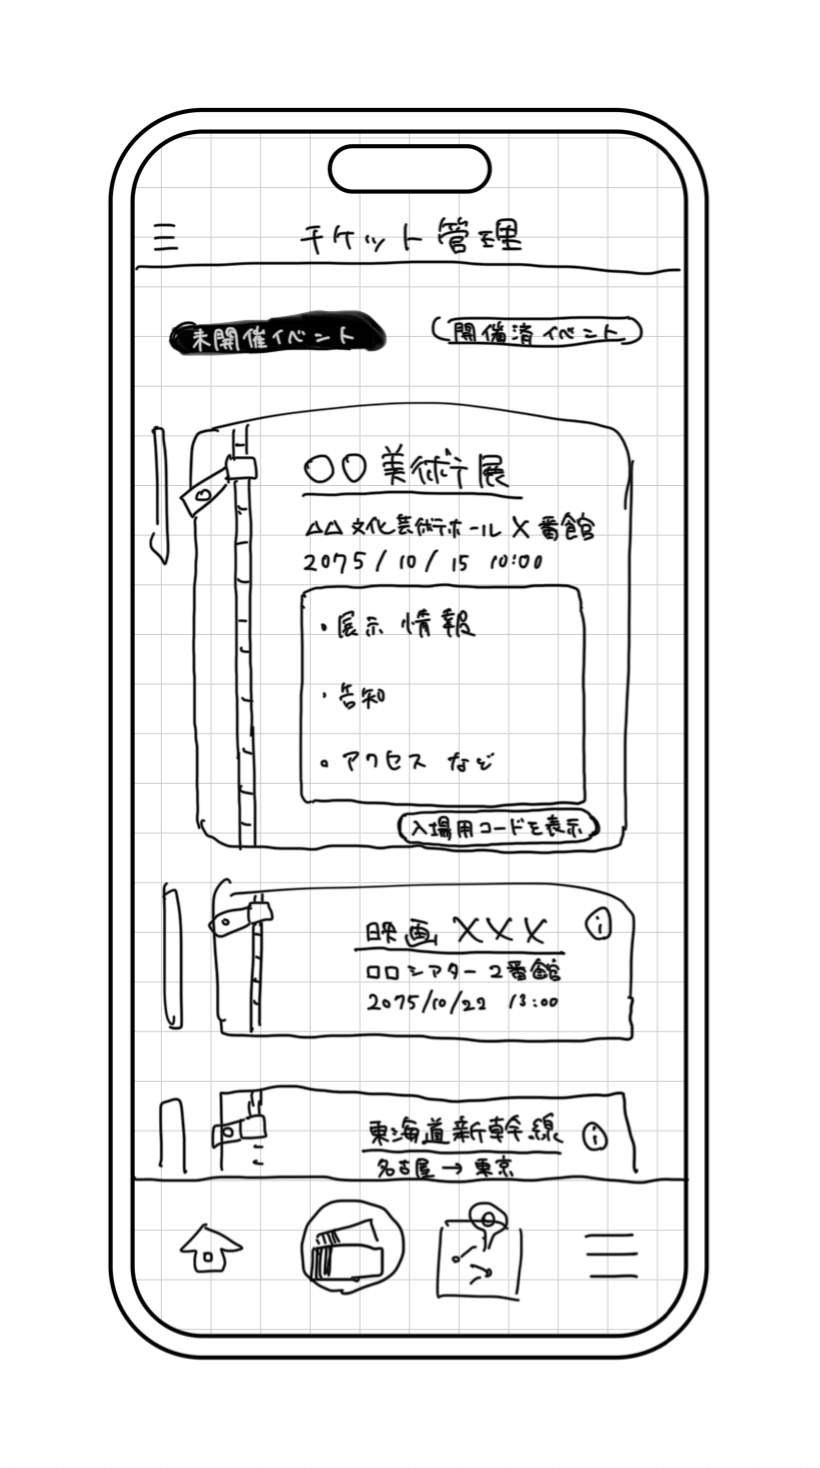 チケット管理
未開催イベント
開催済イベント
○○美術展
△△文化芸術ホール X番館
2075/10/15 10:00
・展示情報
・告知
・アクセス など
入場用コードを表示
映画 XXX
i
□□シアター 2番館
2075/10/22 13:00
東海道新幹線
i
名古屋→東京